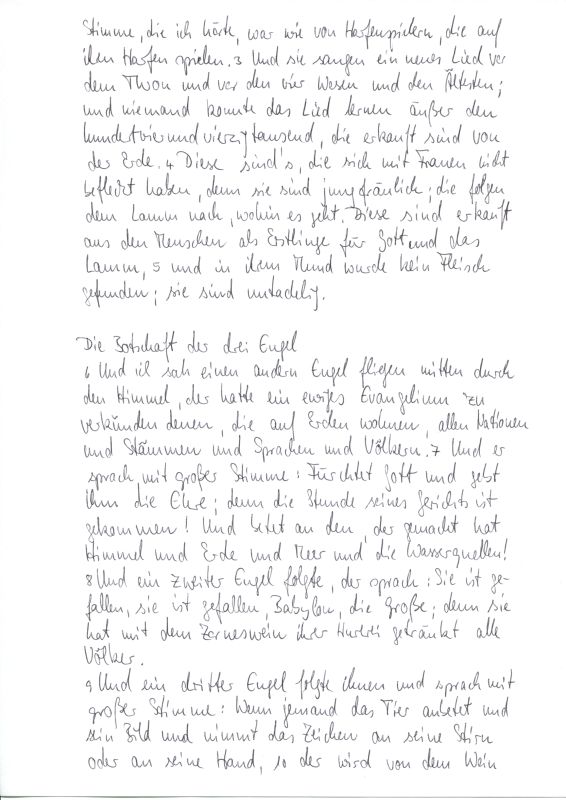 Stimme, die ich hörte, war wie von Harfenspielern, die auf
ihren Harfen spielen. 3 Und sie sangen ein neues Lied vor
dem Thron und vor den vier Wesen und den Ältesten;
und niemand konnte das Lied lernen außer den
hundertvierundvierzigtausend, die erkauft sind von
der Erde. 4 Diese sind's, die sich mit Frauen nicht
befleckt haben, denn sie sind jungfräulich; die folgen
dem Lamm nach, wohin es geht. Diese sind erkauft
aus den Menschen als Erstlinge für Gott und das
Lamm, 5 und in ihrem Mund wurde kein Fleisch
gefunden; sie sind untadelig.
Die Botschaft der drei Engel
6 Und ich sah einen andern Engel fliegen mitten durch
den Himmel, der hatte ein ewiges Evangelium zu
verkünden denen, die auf Erden wohnen, allen Nationen
und Stämmen und Sprachen und Völkern. 7 Und er
sprach mit großer Stimme: Fürchtet Gott und gebt
ihm die Ehre; denn die Stunde seines Gerichts ist
gekommen! Und betet an den, der gemacht hat
Himmel und Erde und Meer und die Wasserquellen!
8 Und ein zweiter Engel folgte, der sprach: Sie ist ge-
fallen, sie ist gefallen, Babylon, die Große; denn sie
hat mit dem Zorneswein ihrer Hurerei getränkt alle
Völker.
9 Und ein dritter Engel folgte ihnen und sprach mit
großer Stimme: Wenn jemand das Tier anbetet und
sein Bild und nimmt das Zeichen an seine Stirn
oder an seine Hand, 10 der wird von dem Wein